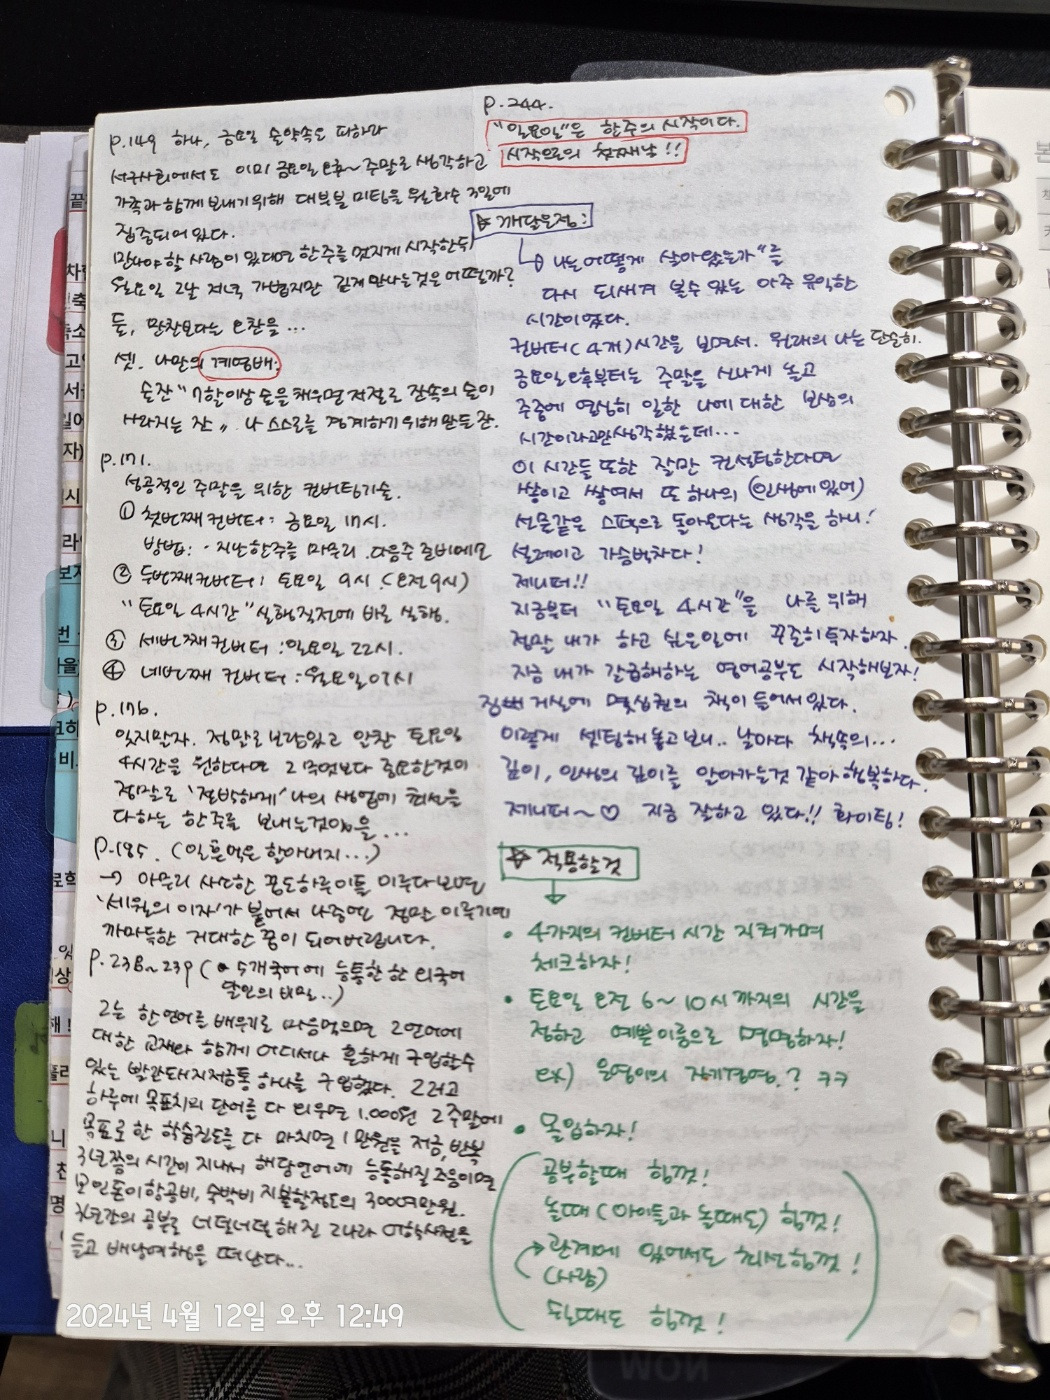 p.149 하나, 금요일 술약속도 피하라
서구사회에서도 이미 금요일 오후~주말로 생각하고
가족과 함께 보내기 위해 대부분 미팅을 월화수 3일에
집중되어 있다.
만나야 할 사람이 있다면 한주를 멋지게 시작한 뒤
월요일 그날 저녁 가볍지만 길게 만나는것은 어떨까?
둘, 만찬보다는 오찬을...
셋. 나만의 계영배:
술잔 "7할이상 술을 채우면 저절로 잔속의 술이
사라지는 잔" 나 스스로를 경계하기 위해 만든 잔.
p.171.
성공적인 주말을 위한 컨버팅기술.
① 첫번째 컨버터: 금요일 17시.
방법: · 지난한주를 마무리. 다음주 준비메모
② 두번째 컨버터: 토요일 9시.(오전9시)
"토요일 4시간" 실행직전에 바로 실행.
③ 세번째 컨버터 : 일요일 22시.
④ 네번째 컨버터 : 월요일 07시
p.176.
잊지말자. 정말로 보람있고 알찬 토요일
4시간을 원한다면 그 무엇보다 중요한것이
정말로 '절박하게' 나의 생업에 최선을
다하는 한주를 보내는것임을...
p.185. (일흔먹은 할아버지...)
→ 아무리 사소한 꿈도 하루이틀 미루다보면
'세월의 이자'가 붙어서 나중엔 정말 이루기엔
까마득한 거대한 꿈이 되어버립니다.
p.238~239 (● 5개국어에 능통한 한 외국어
달인의 비밀..)
그는 한 언어를 배우기로 마음먹으면 그언어에
대한 교재와 함께 어디서나 흔하게 구입할수
있는 빨간돼지저금통 하나를 구입했다. 그리고
하루에 목표치의 단어를 다 외우면 1,000원 그 주말에
목표로 한 학습진도를 다 마치면 1만원을 저금, 반복
3년쯤의 시간이 지나서 해당언어에 능통해질 즈음이면
모인돈이 항공비, 숙박비 지불할정도의 300여만원.
3년간의 공부로 너덜너덜해진 그나라 어학사전을
들고 배낭여행을 떠난다...
p.244.
"일요일"은 한주의 시작이다.
시작으로의 첫째날!!
☆ 깨달은점:
↳ 나는 어떻게 살아왔는가"를
다시 되새겨 볼수 있는 아주 유익한
시간이였다.
컨버터(4개)시간을 보면서. 원래의 나는 단순히.
금요일오후부터는 주말을 신나게 놀고
주중에 열심히 일한 나에 대한 보상의
시간이라고만 생각했는데...
이 시간들 또한 잘만 컨설팅한다면
쌓이고 쌓여서 또 하나의 (인생에있어)
선물같은 스펙으로 돌아온다는 생각을 하니!
설레이고 가슴벅차다!
제니퍼!!
지금부터 "토요일 4시간"을 나를 위해
정말 내가 하고 싶은일에 꾸준히 투자하자.
지금 내가 갈급해하는 영어공부도 시작해보자!
집벽 거실에 몇십권의 책이 들어서있다.
이렇게 셋팅해 놓고보니.. 날마다 책속의...
깊이, 인생의 깊이를 알아가는것 같아 행복하다.
제니퍼~♡ 지금 잘하고 있다!! 화이팅!
☆ 적용할것
• 4가지의 컨버터 시간 지켜가며
체크하자!
• 토요일 오전 6~10시까지의 시간을
정하고 예쁜이름으로 명명하자!
ex) 은영이의 자기경영.? ㅋㅋ
• 몰입하자!
공부할때 힘껏!
놀때(아이들과 놀때도) 힘껏!
→ 관계에 있어서도 최선 힘껏!
(사람)
돈벌때도 힘껏!
2024년 4월 12일 오후 12:49